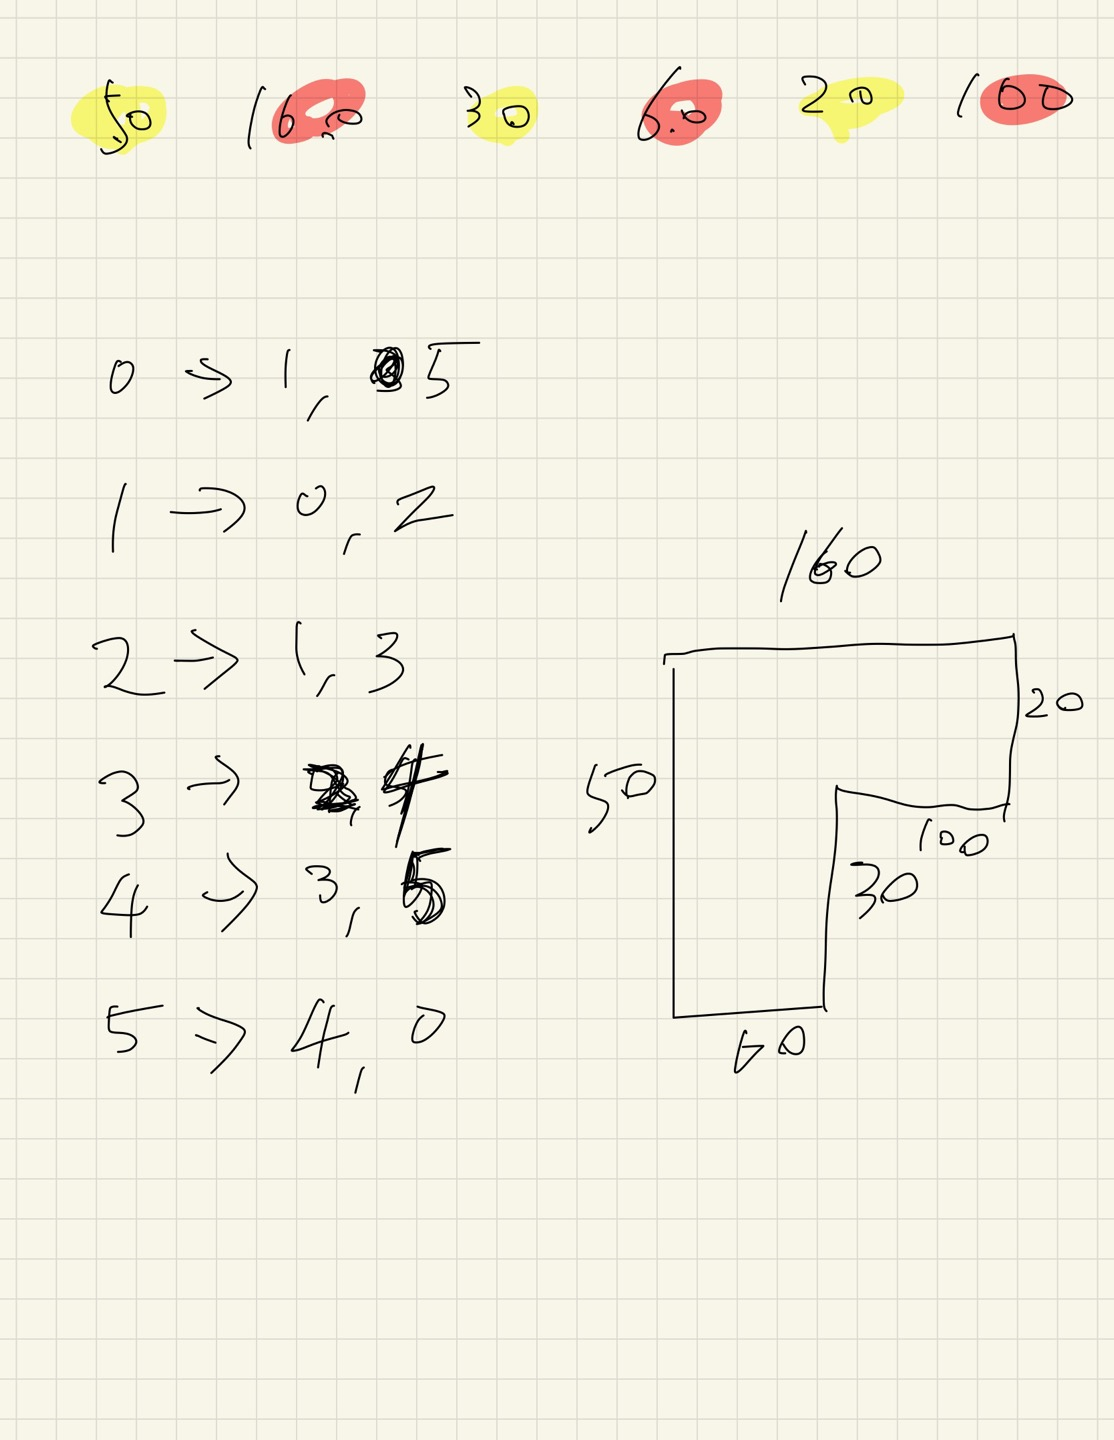 50 160 30 60 20 100
0 → 1, 5
1 → 0, 2
160
2 → 1, 3
20
50
3 → 2, 4
100
4 → 3, 5
30
5 → 4, 0
60